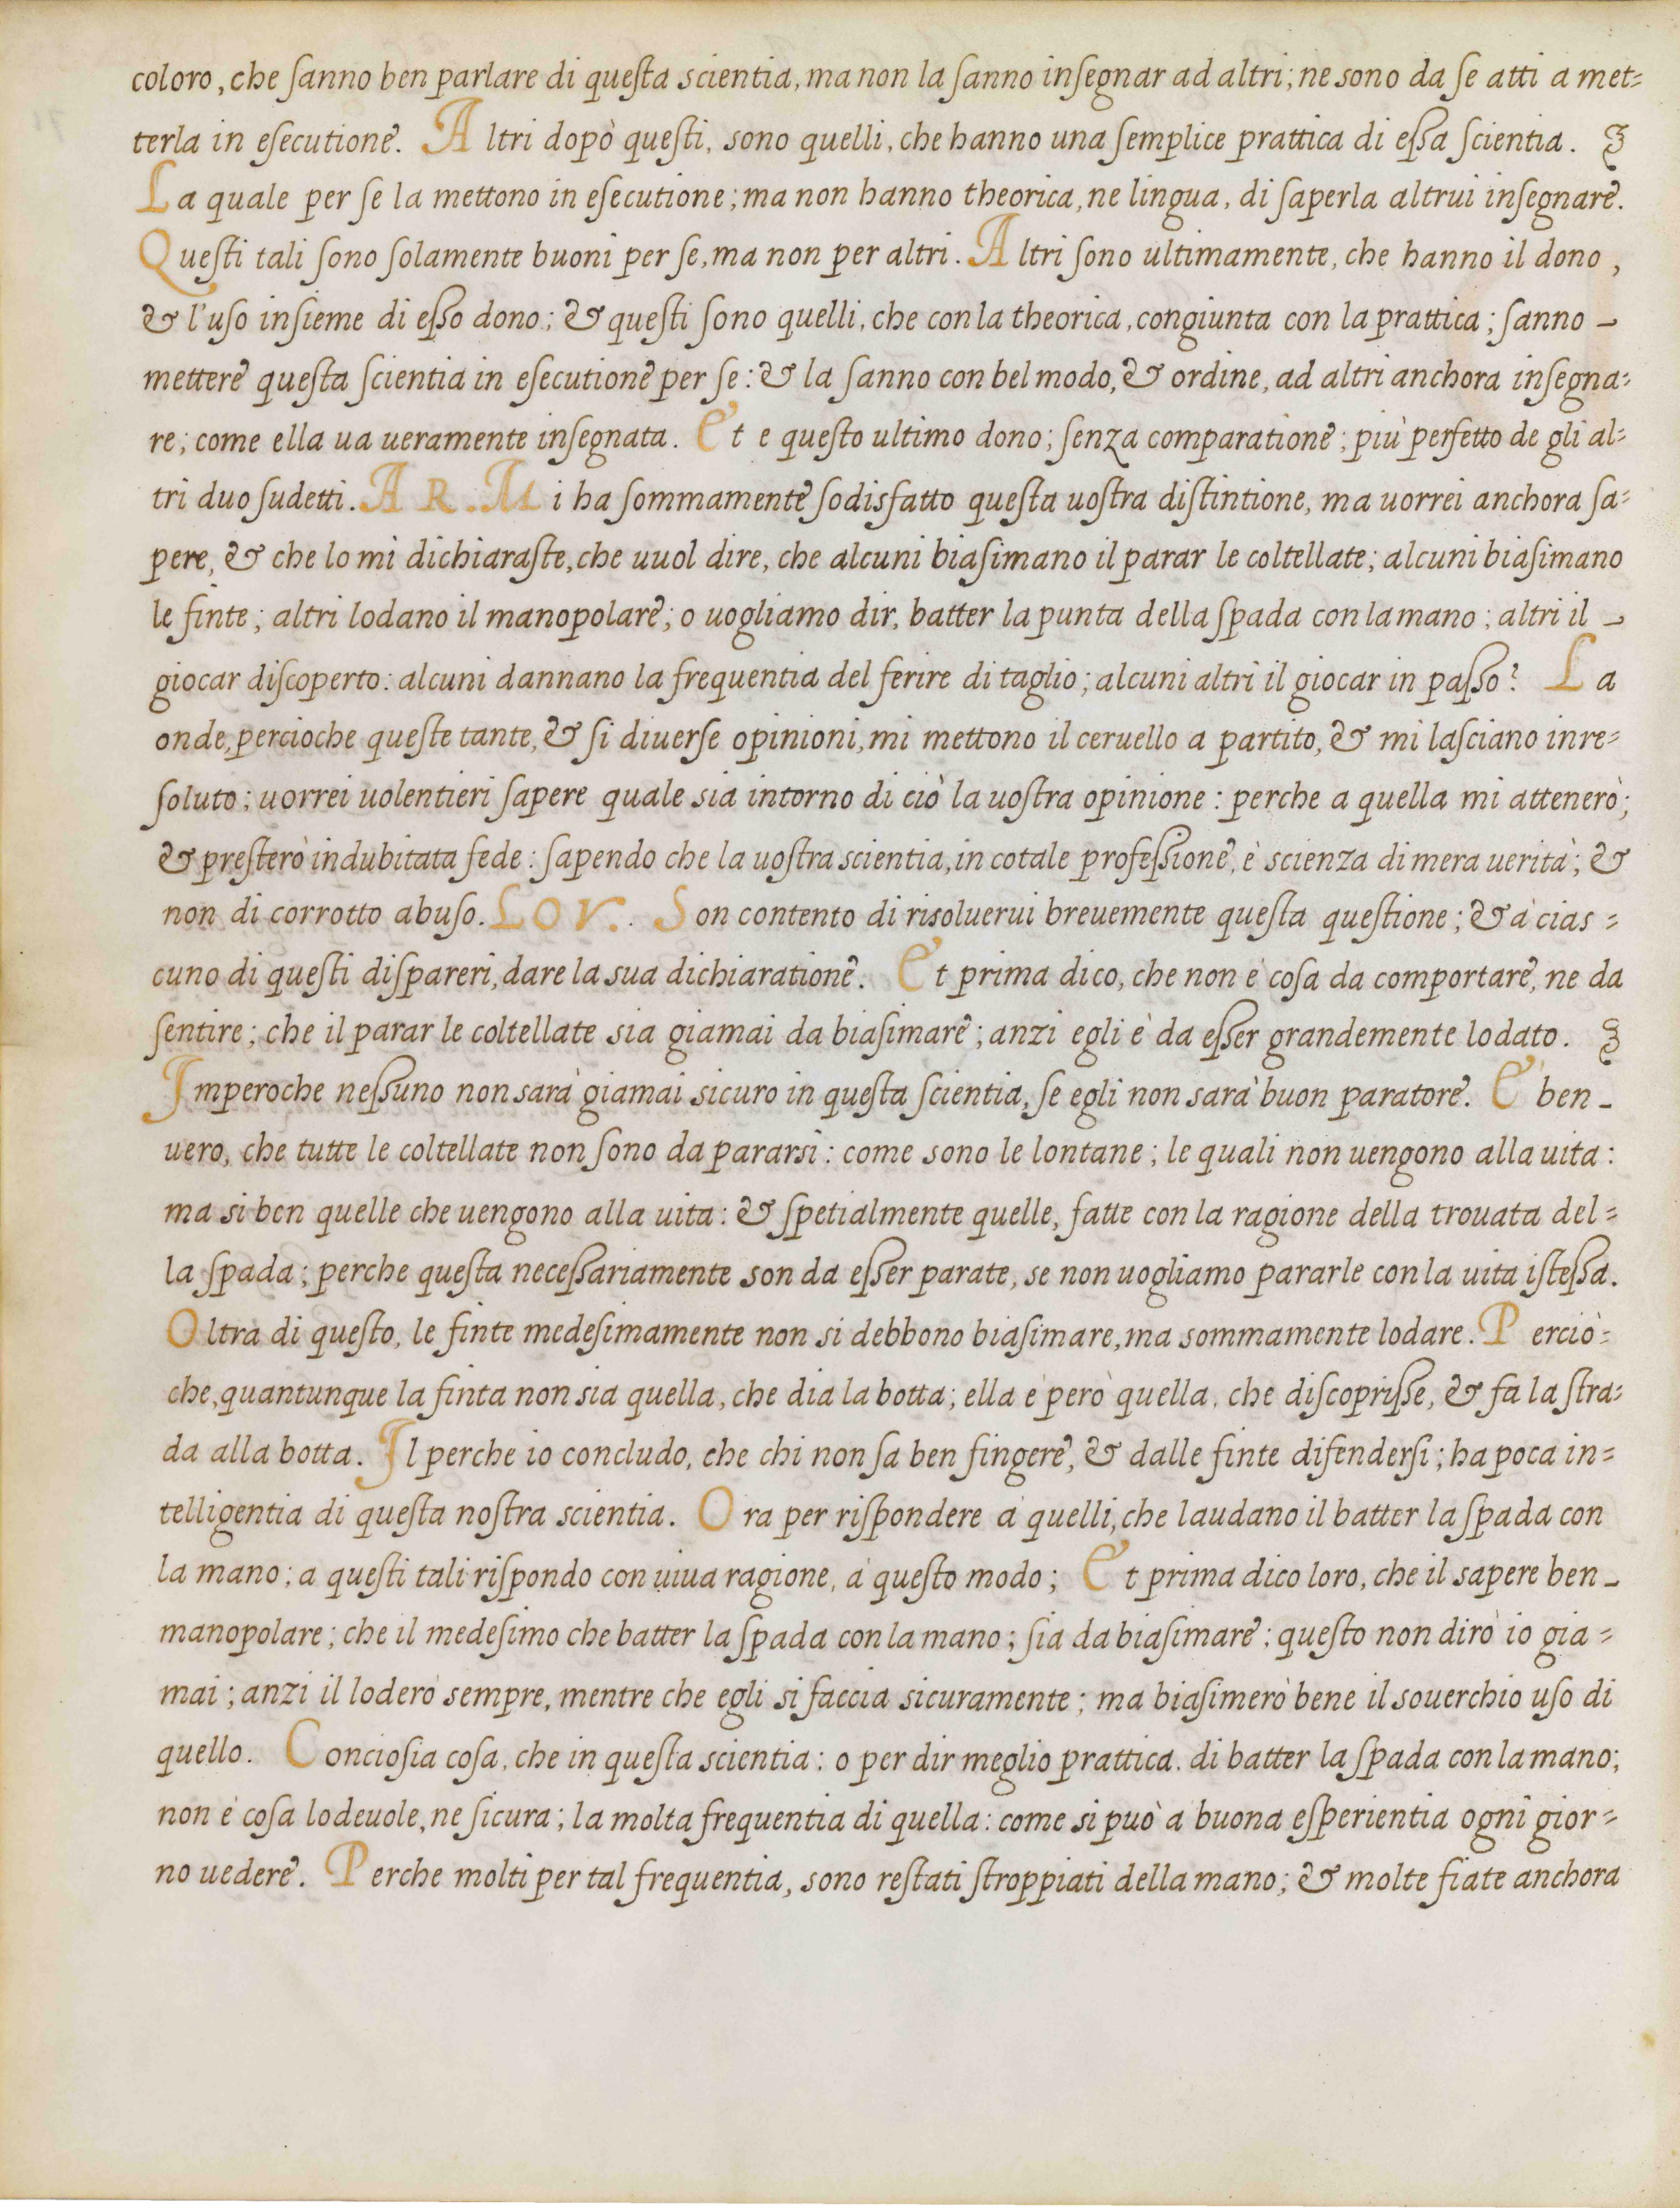 coloro, che ſanno ben parlare di queſta scientia, ma non la ſanno inſegnar ad altri; ne sono da ſe atti a met=
terla in eſecutione. Altri dopò queſti, sono quelli, che hanno una ſemplice prattica di eſſa ſcientia.
La quale per ſe la mettono in eſecutione; ma non hanno theorica, ne lingua, di ſaperla altrui inſegnare.
Queſti tali ſono ſolamente buoni per ſe, ma non per altri. Altri ſono ultimamente, che hanno il dono,
& l'uſo inſieme di eſſo dono; & queſti ſono quelli, che con la theorica, congiunta con la prattica; ſanno -
mettere queſta ſcientia in eſecutione per ſe: & la ſanno con bel modo, & ordine, ad altri anchora inſegna=
re; come ella ua ueramente inſegnata. Et e queſto ultimo dono; ſenza comparatione; più perfetto de gli al=
tri duo ſudetti. AR. Mi ha ſommamente ſodisfatto queſta uoſtra diſtintione, ma uorrei anchora ſa=
pere, & che lo mi dichiaraſte, che uuol dire, che alcuni biaſimano il parar le coltellate; alcuni biaſimano
le finte; altri lodano il manopolare; o uogliamo dir, batter la punta della ſpada con la mano; altri il -
giocar diſcoperto: alcuni dannano la frequentia del ferire di taglio; alcuni altri il giocar in paſſo? La
onde, percioche queſte tante, & ſi diuerſe opinioni, mi mettono il ceruello a partito, & mi laſciano inre=
ſoluto; uorrei uolentieri ſapere quale sia intorno di ciò la uoſtra opinione: perche a quella mi attenerò;
& preſterò indubitata fede: ſapendo che la uoſtra scientia, in cotale profeſſione, è scienza di mera uerità; &
non di corrotto abuſo. LOV. Son contento di risoluerui breuemente queſta queſtione; & à cias=
cuno di queſti diſpareri, dare la sua dichiaratione. Et prima dico, che non è coſa da comportare, ne da
ſentire; che il parar le coltellate sia giamai da biaſimare; anzi egli è da eſſer grandemente lodato.
Imperoche neſſuno non sarà giamai sicuro in queſta ſcientia, ſe egli non sarà buon paratore. E ben -
uero, che tutte le coltellate non ſono da pararsi: come sono le lontane; le quali non uengono alla uita:
ma si ben quelle che uengono alla uita: & ſpetialmente quelle, fatte con la ragione della trouata del=
la ſpada; perche queſta neceſſariamente son da eſſer parate, se non uogliamo pararle con la uita iſteſſa.
Oltra di queſto, le finte medeſimamente non si debbono biaſimare, ma sommamente lodare. Perciò=
che, quantunque la finta non sia quella, che dia la botta; ella è però quella, che diſcopriſſe, & fa la ſtra=
da alla botta. Il perche io concludo, che chi non ſa ben fingere, & dalle finte difenderſi; ha poca in=
telligentia di queſta noſtra scientia. Ora per riſpondere à quelli, che laudano il batter la ſpada con
la mano; a queſti tali riſpondo con uiua ragione, à queſto modo; Et prima dico loro, che il sapere ben -
manopolare; che il medeſimo che batter la ſpada con la mano; ſia da biaſimare; queſto non dirò io gia=
mai; anzi il loderò sempre, mentre che egli si faccia sicuramente; ma biaſimerò bene il souerchio uſo di
quello. Concioſia coſa, che in queſta scientia: o per dir meglio prattica. di batter la ſpada con la mano;
non è coſa lodeuole, ne ſicura; la molta frequentia di quella: come si può à buona eſperientia ogni gior=
no uedere. Perche molti per tal frequentia, sono reſtati ſtroppiati della mano; & molte fiate anchora